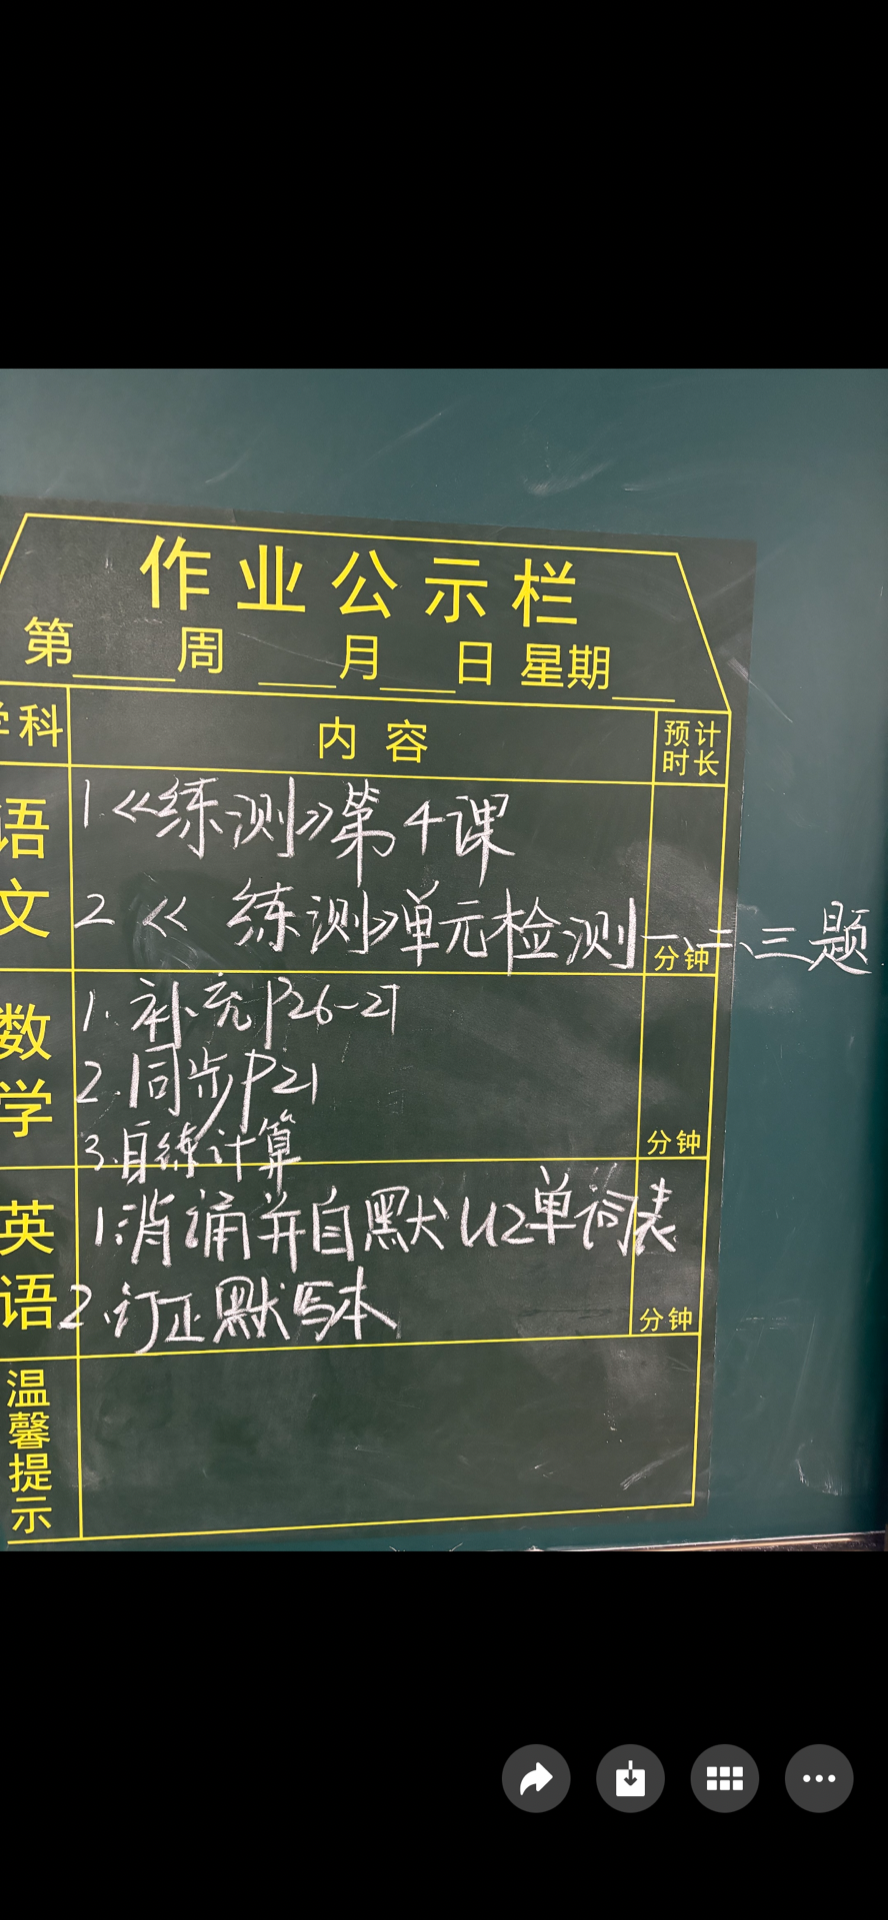 作业公示栏
第____周 ____月____日 星期____
学科 内容 预计时长
语文
1.《练测》第4课
2《练测》单元检测一、二、三题
分钟
数学
1.补充P26-27
2.同步P21
3.自练计算
分钟
英语
1.背诵并自默U2单词表
2.订正默写本
分钟
温馨提示